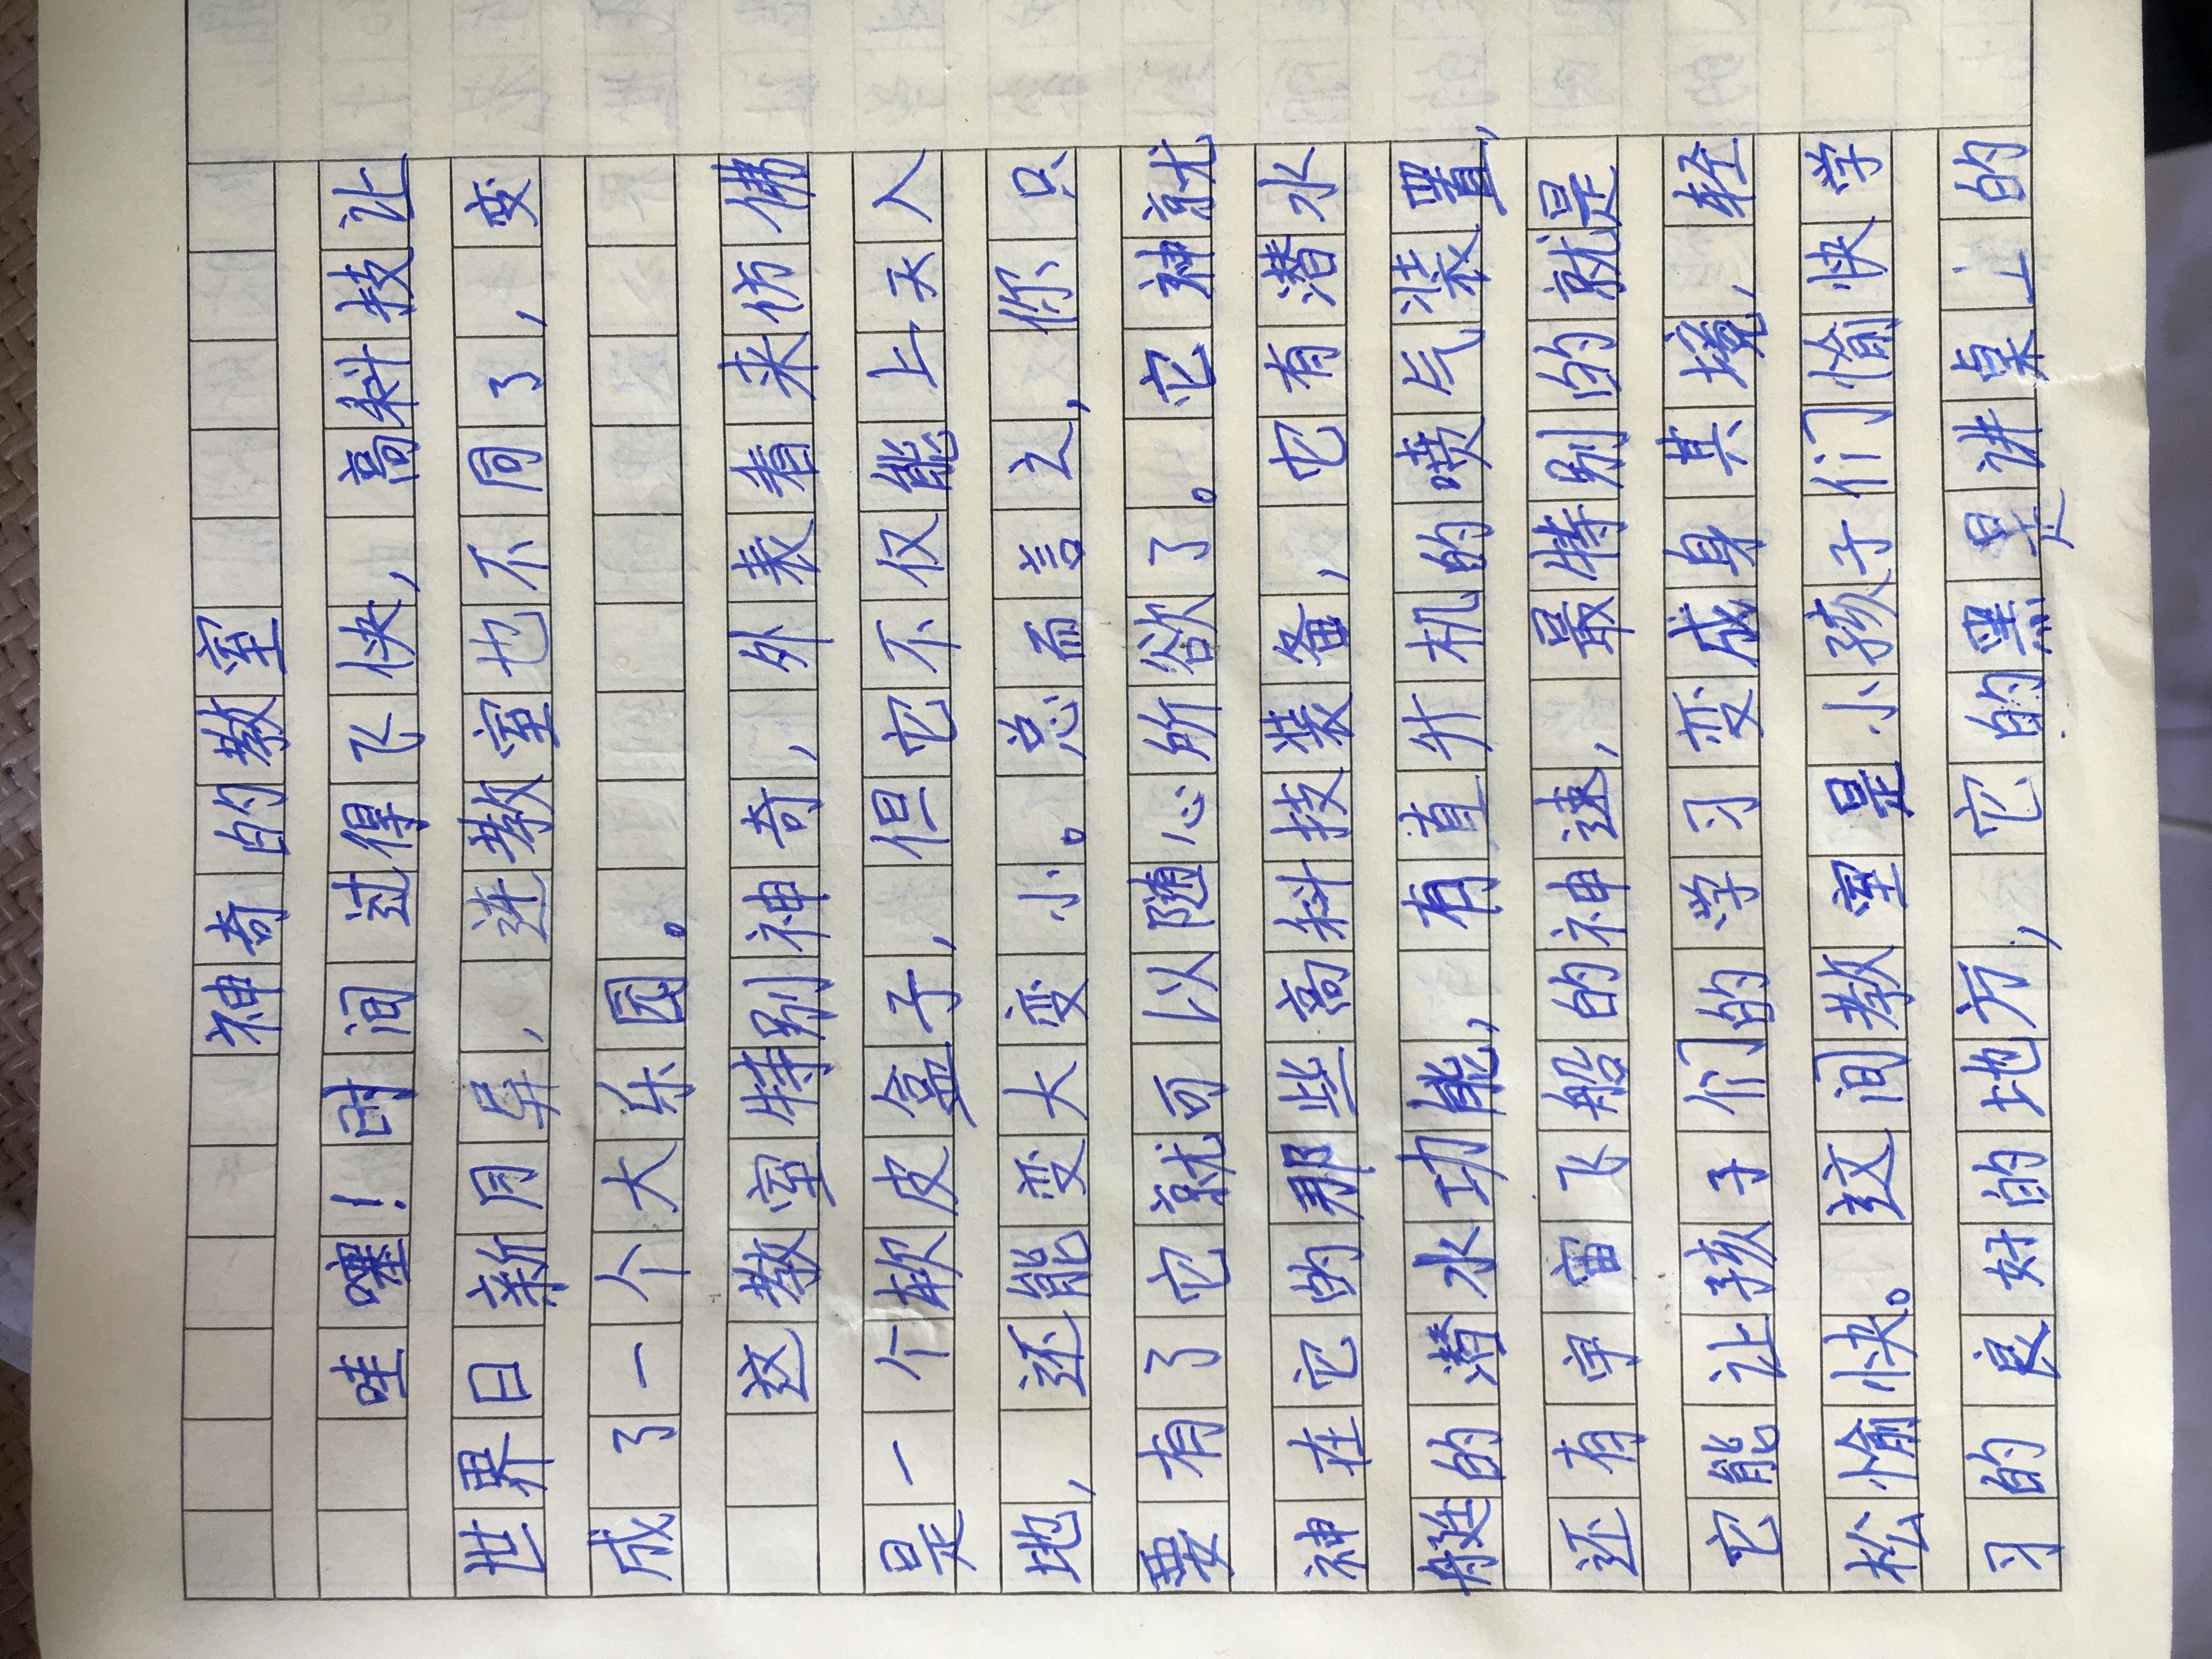 神奇的教室
哇噻！时间过得飞快，高科技让
世界日新月异，连教室也不同了，变
成了一个大乐园。
这教室特别神奇，外表看来仿佛
是一个软皮盒子，但它不仅能上天入
地，还能变大变小。总而言之，你只
要有了它就可以随心所欲了。它神就
神在它的那些高科技装备，它有潜水
艇的潜水功能，有直升机的喷气装置，
还有宇宙飞船的神速，最特别的就是
它能让孩子们的学习变成身其境，轻
松愉快。这间教室是小孩子们愉快学
习的良好的地方，它的黑是讲桌上的